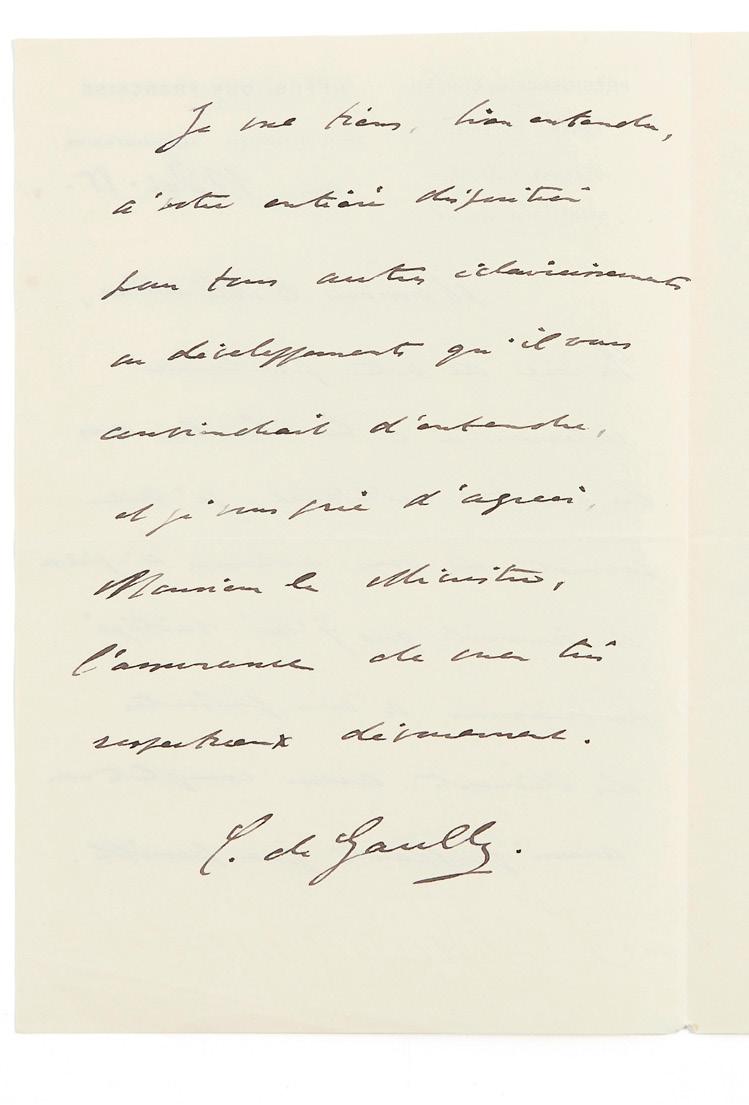 Je me tiens, bien entendu,
à votre entière disposition
pour tous autres éclaircissements
ou développements qu'il vous
conviendrait d'entendre,
et je vous prie d'agréer,
Monsieur le Ministre,
l'assurance de mon très
respectueux dévouement.
C. de Gaulle.